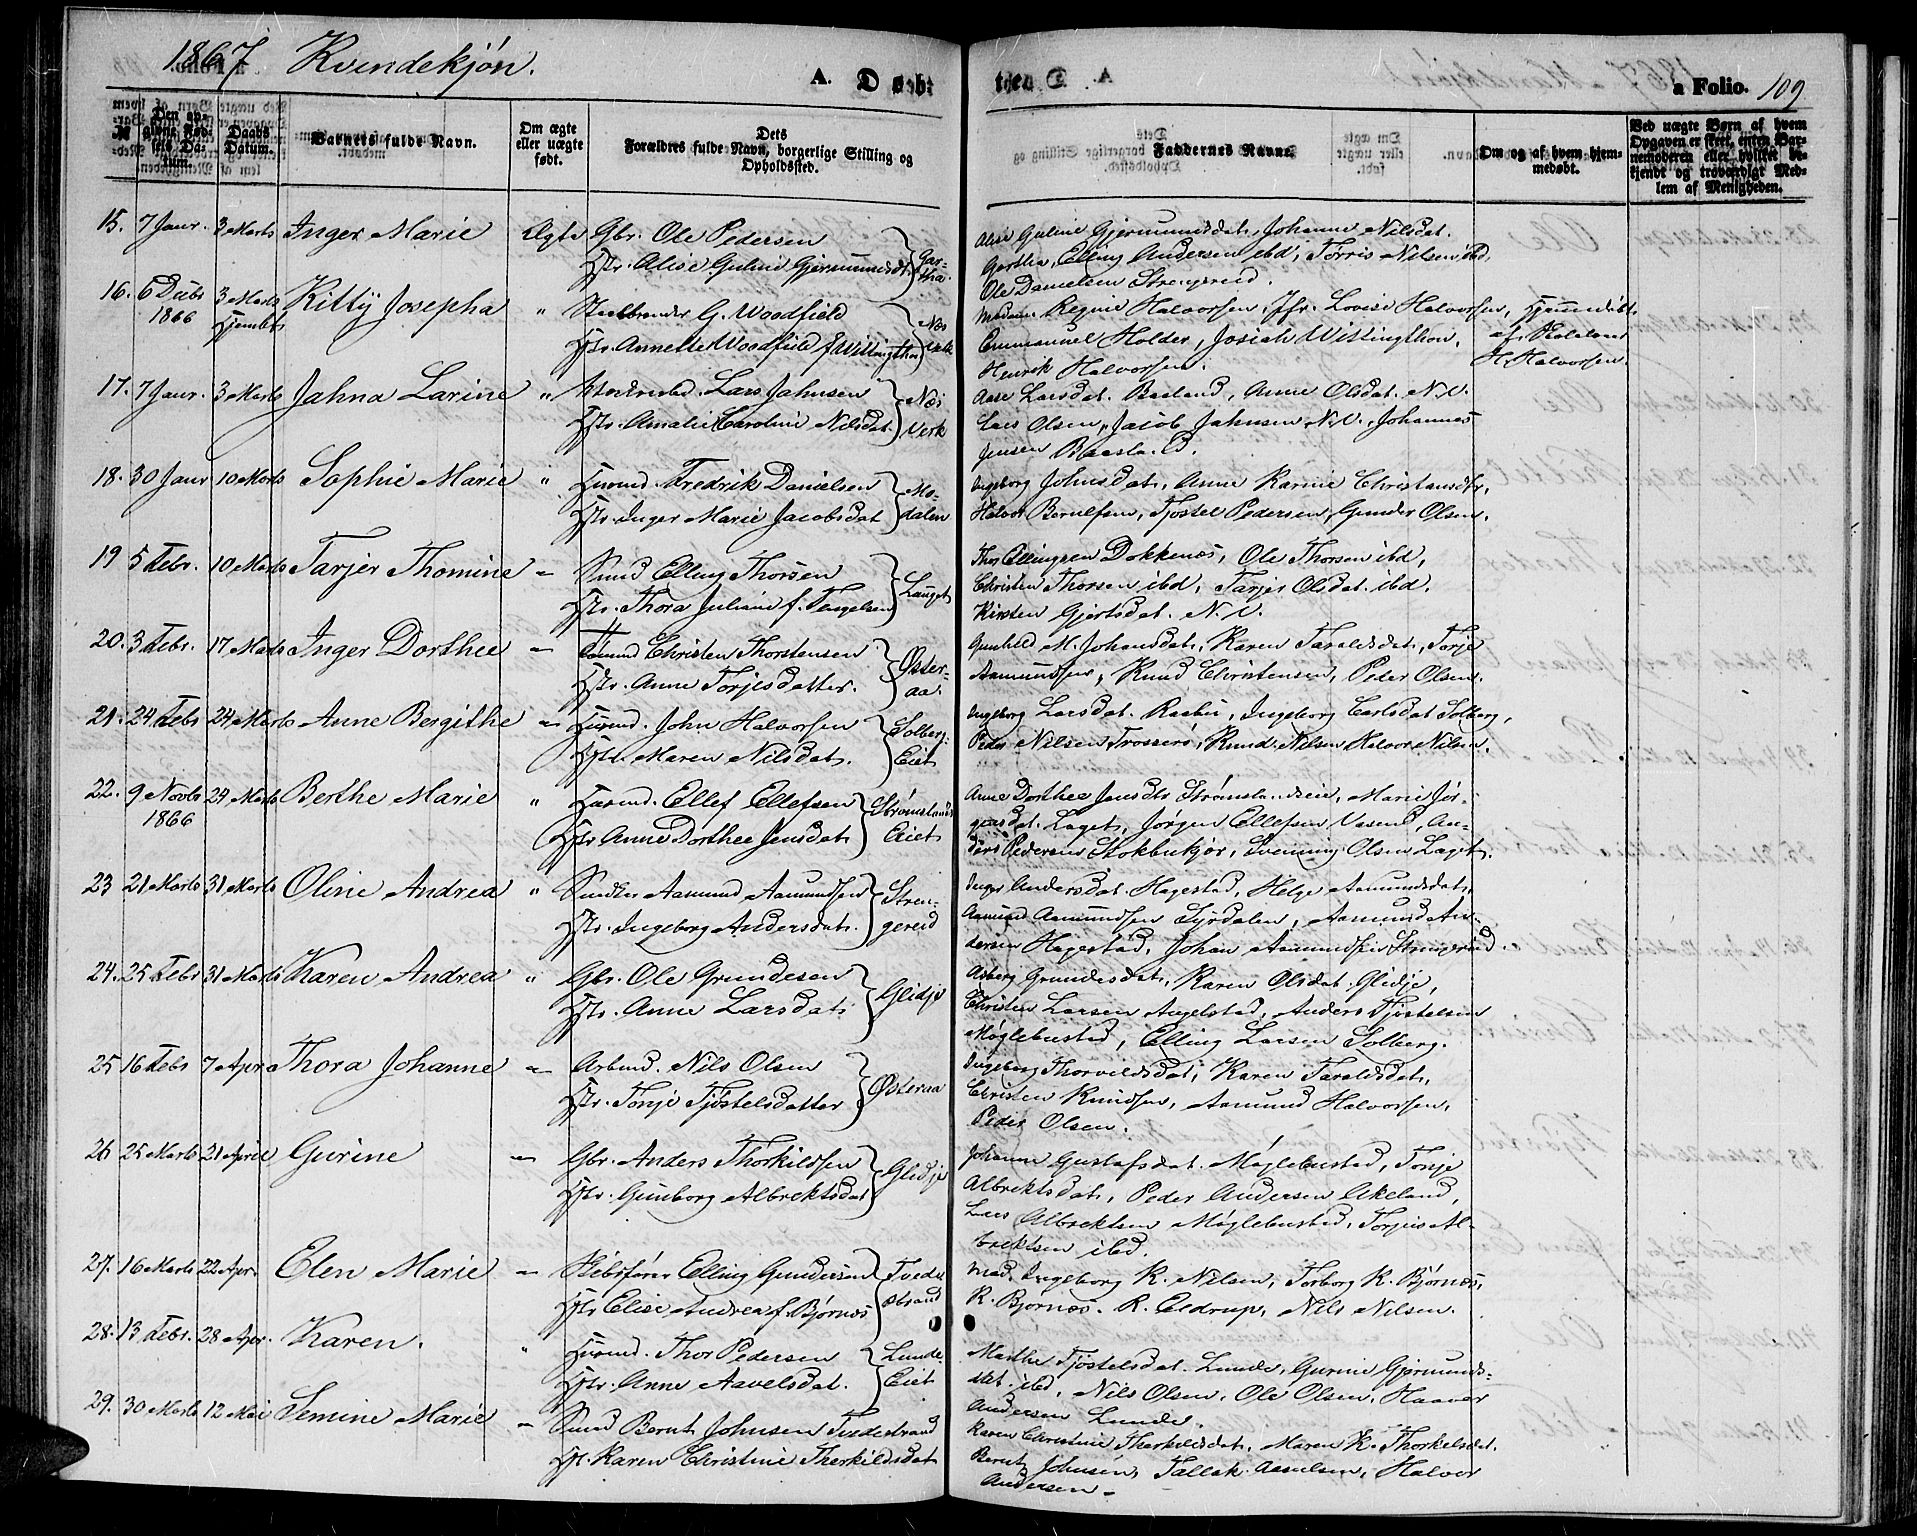 1867 Kvindekjøn.
A. Døbte.
a Folio. 109
№
Den opgivne Fødsels Datum.
Daabs Datum.
Barnets fulde Navn.
Om ægte eller uægte født.
Forældres fulde Navn, borgerlige Stilling og Opholdssted.
Faddernes Navne.
Om og af hvem hjemmedøbt.
Ved uægte Børn af hvem Opgaven er skeet, enten Barnemoderen eller hvilket bekjendt og troværdigt Medlem af Menigheden.
15. 7 Janr. 3 Marts Inger Marie Ægte Gbr. Ole Pedersen
Hstr. Alise Guline Gjermundsdt. Gartha.
Alise Guline Gjermundsdat, Johanne Nilsdat.
Gartha, Elling Andersen ibd, Tørris Nilsen ibd,
Ole Danielsen Strengereid.
16. 6 Debr 1866 3 Marts Hjemdøbt Kitty Josepha " G. Woodfield
Hstr. Annette Woodfield f. Wittingthon Næs Værk
Madam Regine Halvorsen, Jfr. Lovise Halvorsen,
Emmanuel Holder, Josiah Wittingthon,
Henrik Halvorsen.
Hjemmedøbt
af
H. Halvorsen.
17. 7 Janr. 3 Marts Jahna Larine " Lars Jahnsen
Hstr. Amalie Caroline Nilsdat. Næs Verk
Aase Larsdat. Baaland, Anne Olsdat. N.V.
Lars Olsen, Jacob Jahnsen N.V. Johannes
Jensen Baasland.
18. 30 Janr 10 Marts Sophie Marie " Husmd. Fredrik Danielsen
Hstr. Inger Marie Jacobsdat Modalen
Ingeborg Johnsdat, Anne Karine Christensdtr,
Halvor Berulfsen, Tjøstel Pedersen, Gunder Olsen.
19 5 Febr. 10 Marts Tarjer Thomine - Smd Elling Thorsen
Hstr. Thora Juliane f. Tengelsen Lauget
Thor Ellingsen Dokkenæs, Ole Thorsen ibd,
Christen Thorsen ibd, Tarjer Olsdat. ibd.
Kirsten Gjertsdat. N.V.
20. 3 Febr. 17 Marts Inger Dorthee - Christen Thorstensen
Hstr. Anne Torjesdatter. Østeraa.
Gunhild M. Johansdat, Karen Taraldsdat, Torje
Aamundsen, Knud Christensen, Peder Olsen.
21. 24 Febr 24 Marts Anne Bergithe - Husmd. John Halvorsen
Hstr. Maren Nilsdat. Solberg Eiet
Ingeborg Larsdat. Raabu, Ingeborg Carlsdat Solberg,
Peder Nilsen Trosserø, Knud Nilsen Halvor Nilsen.
22. 9 Novbr 1866 24 Marts Berthe Marie " Husmd. Ellef Ellefsen
Hstr Anne Dorthee Jensdat. Strømslands Eiet
Anne Dorthee Jensdtr Strømslandseie, Marie Jørgensdat.
Laget, Jørgen Ellefsen Vasend, Anders
Pedersen Stokbukjør, Svenning Olsen Laget.
23 21 Marts 31 Marts Oline Andrea " Aamund Aamundsen
Hstr. Ingeborg Andersdat. Strengereid
Inger Andersdat. Hagestad, Helge Aamundsdat,
Aamund Aamundsen Syrdalen, Aamund Andersen
Hagestad, Johan Aamundsen Strengereid.
24. 25 Febr 31 Marts Karen Andrea " Gbr. Ole Grundesen
Hstr. Anne Larsdat Glidje
Asberg Grundesdat, Karen Olsdat. Glidje,
Christen Larsen Angelstad, Anders Tjøstelsen
Møglebustad, Elling Larsen Solberg.
25 16 Febr 7 Apr Thora Johanne - Arbmd. Nils Olsen
Hstr. Tonje Tjøstelsdatter Østeraa
Ingeborg Thorvildsdat, Karen Taraldsdat,
Christen Knudsen, Aamund Halvorsen,
Peder Olsen.
26 25 Marts 21 April Gurine - Gbr. Anders Thorkildsen
Hstr. Gunborg Albrektsdat Glidje
Johanne Gustafsdat. Møglebustad, Tonje
Albrektsdat, Peder Andersen Akeland,
Lars Albrektsen Møglebustad, Torjus Albrektsen
ibd.
27. 16 Marts 22 Apr. Elen Marie - Skibsfører Elling Gundersen
Hstr Elise Andrea f. Bjørnæs Tvedestrand
Mad. Ingeborg K. Nilsen, Torborg K. Bjørnæs,
K. Bjornæs. R. Eldrup, Nils Nilsen.
28. 13 Febr. 28 Apr. Karen. " Husmd. Thor Pedersen
Hstr. Anne Aavelsdat. Lunde Eiet
Marthe Tjøstelsdat. Lunde, Gurine Gjermundsdat.
ibd, Nils Olsen, Ole Olsen, Haaver
Andersen Lunde.
29. 30 Marts 12 Mai Semine Marie - Smd Bernt Johnsen Tvedestrand
Hst. Karen Christine Therkildsdat
Karen Christine Therkildsdat, Maren K. Thorkelsdat.
Bernt Johnsen, Tallak Aanelsen, Halvor
Andersen -